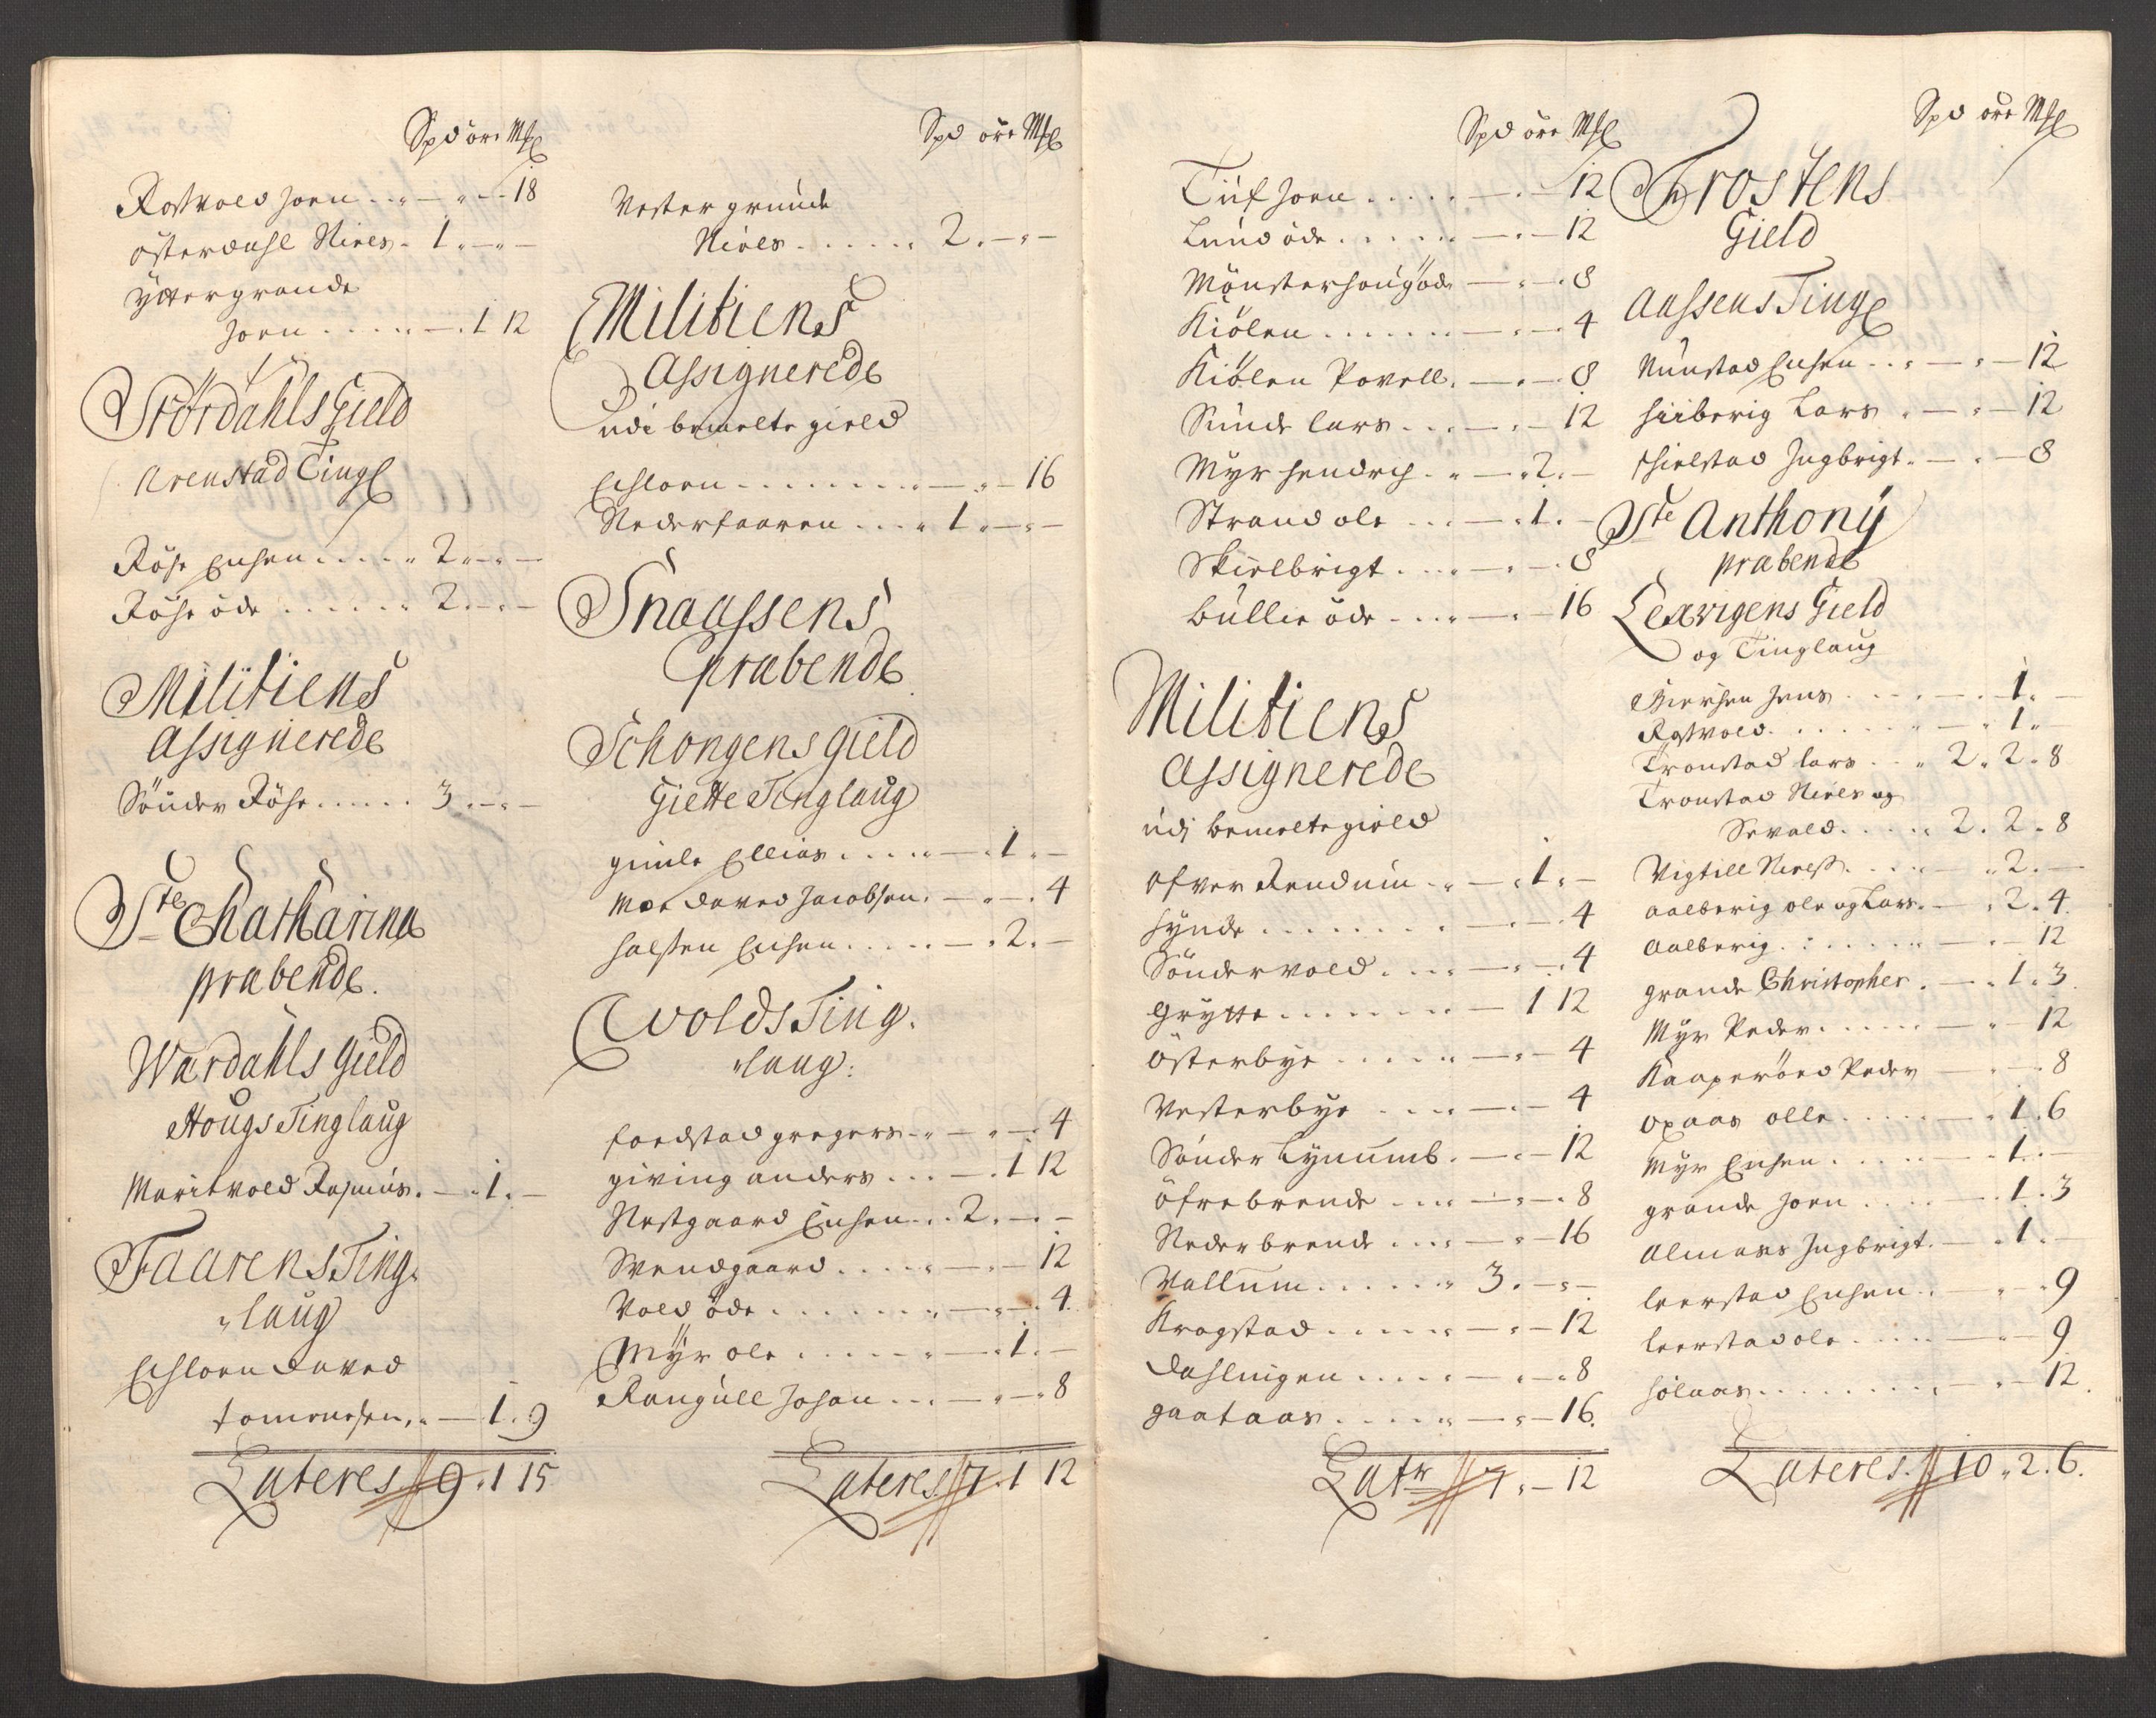 Spd öre Mk
Rostvold Joen . . „ — „ — 18
Österdahl Niels . 1 „ — „ —
Yttergrande
Joen . . . . „ — . 1 12
Stördahls Gield
Arenstad Ting
Röse Ensen . . . . „ 2 „ — „ —
Röse öde . . . . . „ 2 „ — „ —
Militiens
Assignerede
Sönder Röse . . . . . 3 „ — „ —
Ste Chatharina
præbende.
Wærdahls Gield
Hougs Tinglaug
Maritvold Rasmus. — „ 1 „ —
Faarens Ting
„laug
Echloen David
Tomesen „ — 1 . 9
Lateres 9 „ 1 15
Spd öre Mk
Vester grunde
Niels . . . . . . „ 2 „ — „ —
Militiens
Assignerede
udi bemelte gield
Echloen . . . . . . . „ — „ — 16
Nederfaaren . . . „ 1 „ — „ —
Snaassens
præbende
Schongens gield
Giette Tinglaug
gimle Ellias . . . . „ — . 1 „ —
Moe David Jacobsen . — „ — . 4
halsten Ensen . . . . . — „ 2 . —
Wolds Ting.
„laug:
foedstad gregers . „ — „ — 4
giving anders . . . — . 1 12
Nestgaard Ensen . . 2 . — . —
Svendgaard . . . . „ — . — 12
Vold öde . . . . . . „ — „ — . 4
Myr ole . . . . . „ — . 1 . —
Rangull Johan . . . — „ — „ 8
Lateres 7 . 1 12
Spd öre Mk
Tuf Joen . . . . . „ — . — 12
Lund öde . . . . . „ — . — 12
Mönsterhougöde — „ — . 8
Kiölen . . . . . . . — „ — . 4
Kiölen Povell . — „ — . 8
Sunde lars . . . — „ — 12
Myr hendrich . „ — „ 2 . —
Strand ole . . . — „ 1 . —
Skielbrigt . . . „ — „ — . 8
bullie öde . . . „ — „ — 16
Militiens
Assignerede
udj bemelte gield
ofver Rendum . „ — „ 1 „ —
hynde . . . . . . . „ — „ — 4
Söndervold . . . . — „ — . 4
Grytte . . . . . . „ — 1 12
österbye . . . . . „ — „ — 4
Vesterbye . . . . „ — . — 4
Sönder Lynumb . — . — 12
öfrebrende . . . „ — „ — . 8
Nederbrende . . . „ — „ — 16
Vallum . . . . . . „ 3 . — „ —
Kragstad . . . . . „ — „ — 12
Dahlingen . . . . . — „ — „ 8
gaataas . . . . . „ — „ — 16.
Latr 7 „ — 12
Spd öre Mk
Frostens
Gield
Aassens Ting
Nunstad Ensen . . „ — „ — 12
hiiberig Lars „ — „ — 12
schielstad Ingbrigt . — . — 8
Ste Anthony
præbende
Lexvigens Gield
og Tinglaug
Biershen Jens . . . . — . 1 . —
Rostvold . . . . . „ — „ 1 „
Tronstad lars . . „ 2 „ 2 „ 8
Tronstad Niels og
Sevald . . . . „ 2 . 2 „ 8
Vigtill Nielss . . . . — „ 2 . —
aalberig ole og Lars . — „ 2 „ 4.
Aalberig . . . . . . „ — „ — 12
grande Christopher . — . 1 . 3.
Myr Peder . . . . . — „ — 12
Kaaperöed Peder — „ — . 8
opaas olle . . . . . — „ 1 . 6
Myr Ensen . . . . — . 1 . —
grande Joen . . . . — . 1 . 3
Almaas Ingbrigt . — . 1 . —
leerstad Ensen . . — „ — „ 9
leerstad ole . . . . „ — „ — 9
hölaas . . . . . . . „ — „ — 12
Lateres. 10 „ 2 . 6.